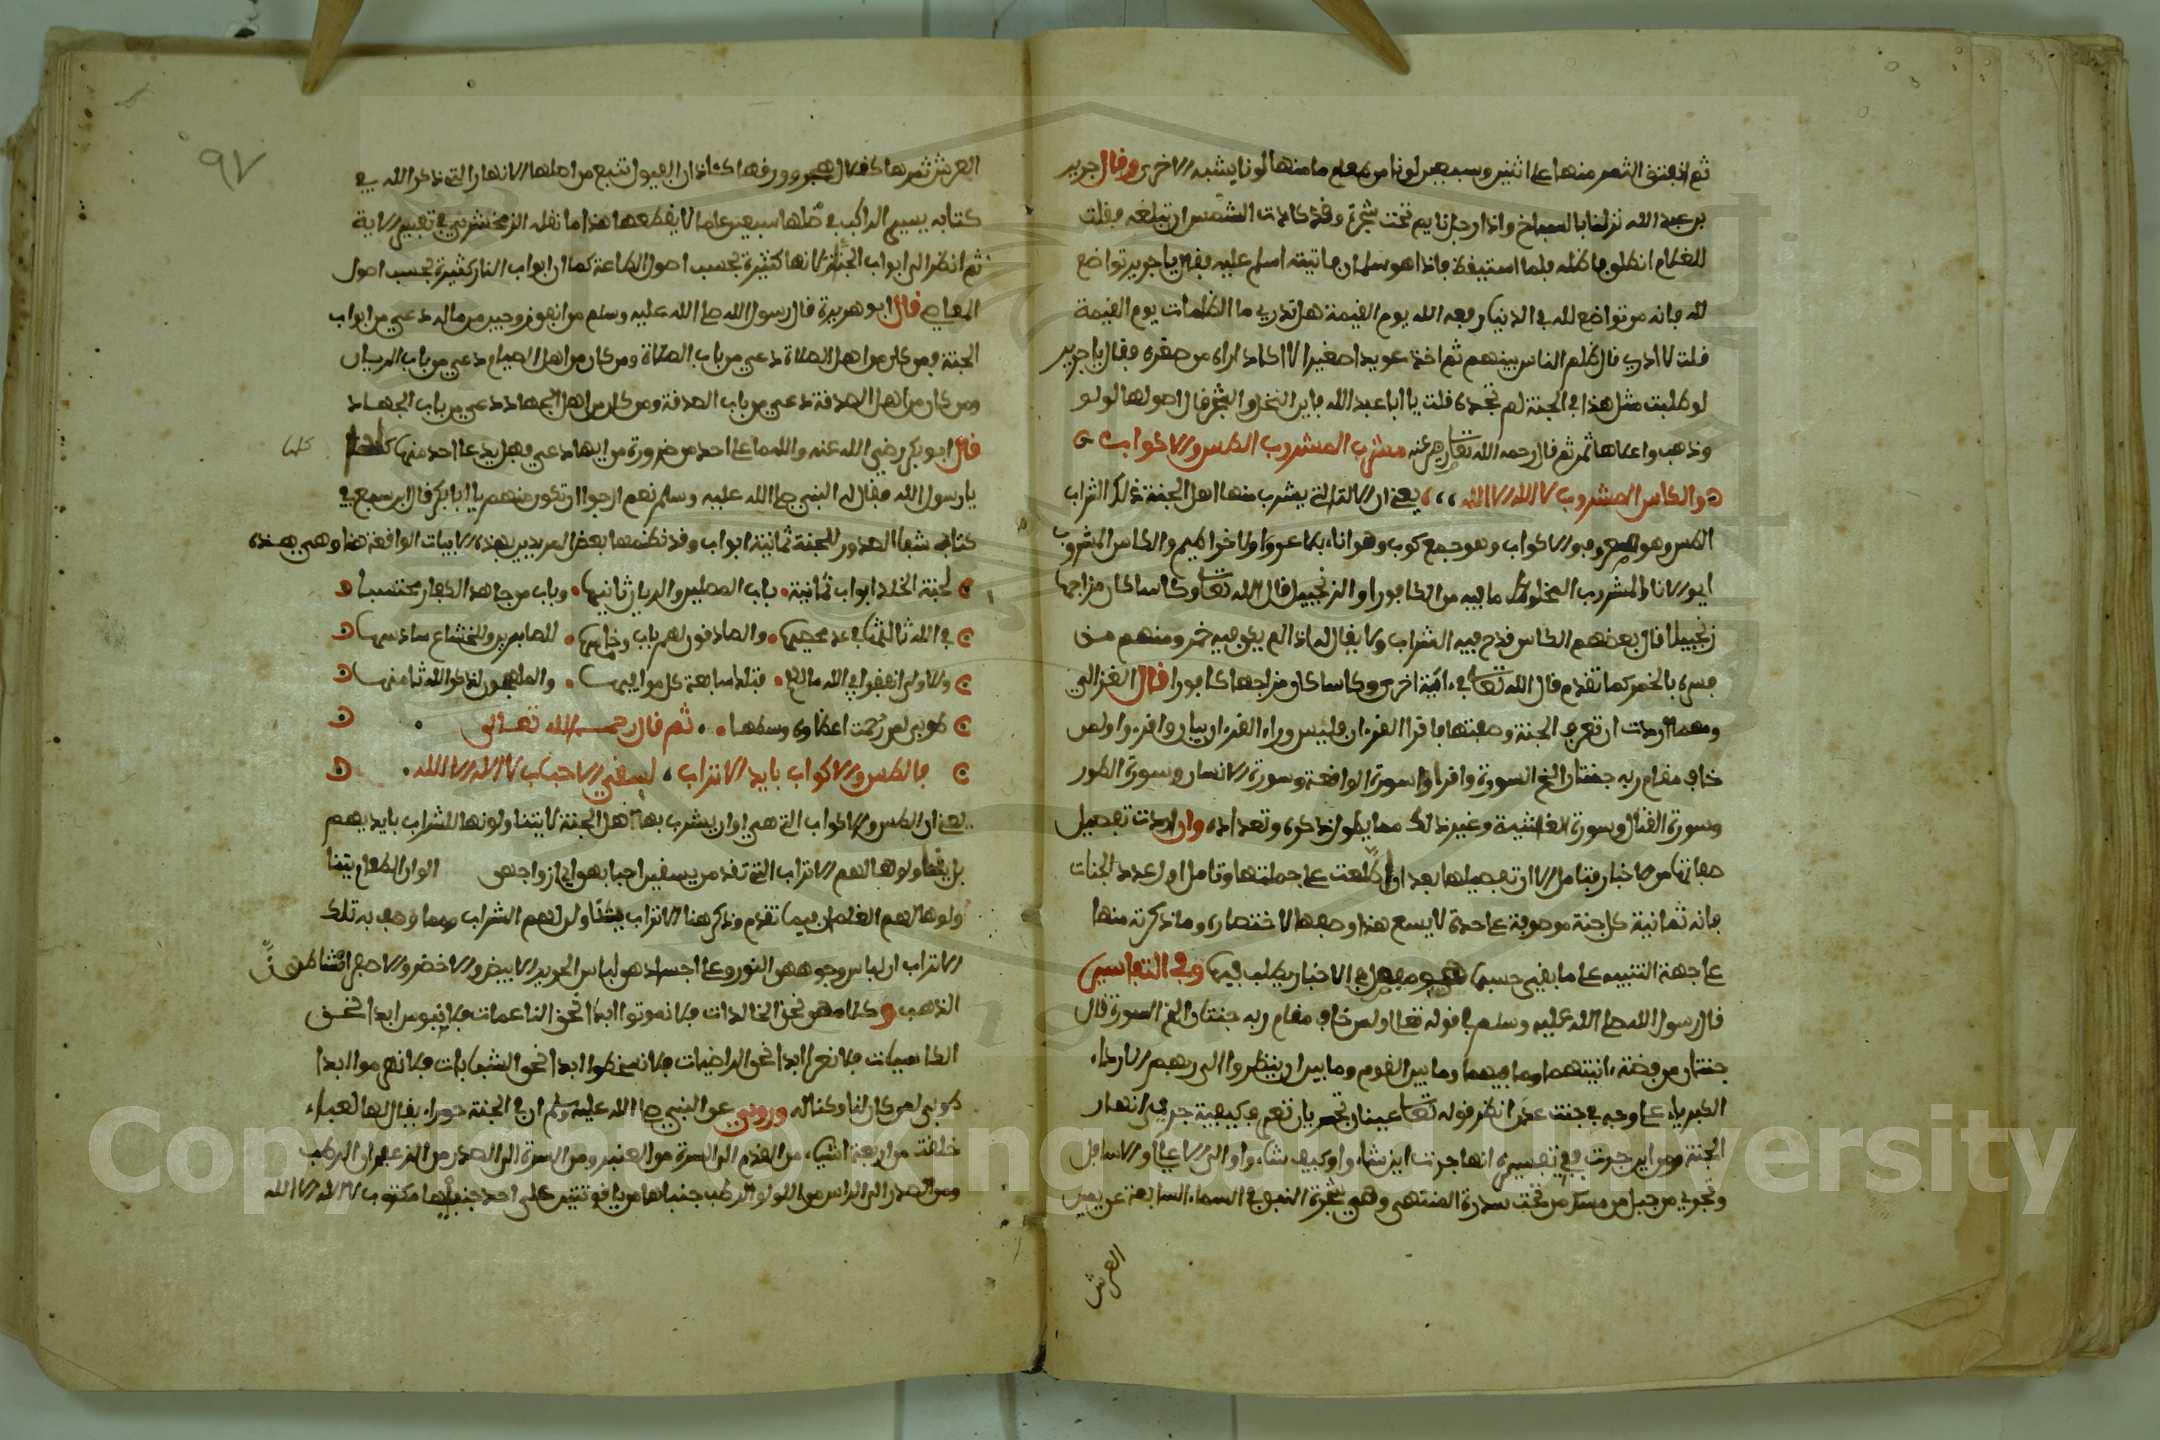 ثم انفتق الثمر منها على اثنين وسبعين لونا من طعام ما منها لونا يشبه الاخرى وقال جرير
بن عبد الله نزلنا بالصباح واذا رجل نايم تحت شجرة وقد كادت الشمس ان تبلغه فقلت
للغلام انطلق فاظله فلما استيقظ فاذا هو سلمان فاتيته اسلم عليه فقال يا جرير تواضع
لله فانه من تواضع لله في الدنيا رفعه الله يوم القيمة هل تدري ما الظلمات يوم القيمة
قلت لا ادري قال ظلم الناس بينهم ثم اخذ عويدا صغيرا لا اكاد اراه من صغره فقال يا جرير
لو طلبت مثل هذا في الجنة لم تجده قلت يا ابا عبد الله فاين النخل والشجر قال اصولها لولو
وذهب واعلاها ثمر ثم قال رحمه الله تعالى ورضي عنه مشرب المشروب الكاس والاكواب
والكاس المشروب لا الله الا الله يعني ان الالة التي يشرب منها اهل الجنة ذلك الشراب
الكاس وهو معروف والاكواب وهو جمع كوب وهو اناء بلا عروة ولا خراطيم والكاس المشروب
اي والاناء المشروب المخلوط ما فيه من الكافور او الزنجبيل قال الله تعالى وكاسا كان مزاجها
زنجبيلا قال بعضهم الكاس قدح فيه الشراب ولا يقال له اذا لم يكن فيه خمر ومنهم من
فسره بالخمر كما تقدم قال الله تعالى في اية اخرى وكاسا كان مزاجها كافورا قال الغزالي
ومهما اردت ان تعرف الجنة وصفتها فاقرا القرءان فليس وراء القرءان بيان واقرء ولمن
خاف مقام ربه جنتان الخ السورة واقرا سورة الواقعة وسورة الانسان وسورة الطور
وسورة القتال وسورة الغاشية وغير ذلك مما يطول ذكره وتعداده وان اردت تفصيل
صفاتها من الاخبار فتامل الان تفصيلها بعد ان اطلعت على جملتها وتامل اول عدد الجنات
فانه ثمانية كل جنة موصوفة على حدة لا يسع هذا وصفها لاختصاره وما ذكرته منها
على جهة التنبيه على ما بقي حسبما هو مفصل في الاخبار يطلب فيها وفي التفاسير
قال رسول الله صلى الله عليه وسلم في قوله تعالى ولمن خاف مقام ربه جنتان الخ السورة قال
جنتان من فضة ءانيتهما وما فيهما وما بين القوم وما بين ان ينظروا الى ربهم الا رداء
الكبرياء على وجهه في جنت عدن انظر قوله تعالى عينان تجريان تعرف كيفية جري انهار
الجنة وهو اين جرت ففي تفسيره انها جرت اين شاء واو كيف شاء واو الى الاعالي والاسافل
وتجري من جبل من مسك من تحت سدرة المنتهى وهي شجرة النبق في السماء السابعة عن يمين
العرش
٩٧
العرش ثمرها كقلال هجر وورقها كئاذان الفيول تنبع من اصلها الانهار التي ذكر الله في
كتابه يسير الراكب في ظلها سبعين عاما لا يقطعها هذا ما نقله الزمخشري في تفسير الاية
ثم انظر الى ابواب الجنة فانها كثيرة بحسب اصول الطاعة كما ان ابواب النار كثيرة بحسب اصول
المعاصي قال ابو هريرة قال رسول الله صلى الله عليه وسلم من انفق زوجين من ماله دعي من ابواب
الجنة فمن كان من اهل الصلاة دعي من باب الصلاة ومن كان من اهل الصيام دعي من باب الريان
ومن كان من اهل الصدقة دعي من باب الصدقة ومن كان من اهل الجهاد دعي من باب الجهاد
قال ابو بكر رضي الله عنه والله ما على احد من ضرورة من ايها دعي فهل يدعا احد منها كلها
كلها
يا رسول الله فقال له النبي صلى الله عليه وسلم نعم ارجوا ان تكون منهم يا ابا بكر قال ابن سبع في
كتابه شفا الصدور للجنة ثمانية ابواب وقد نظمها بعض المريدين بهذه الابيات الواقعة هنا وهي هذه
لجنة الخلد ابواب ثمانية باب المصلين والريان ثانيها وباب من جاهد الكفار محتسبا
في الله ثالثها في عد محصيها والصادقون لهم باب وخامسها للصابرين وللخشاع سادسها
والاولى انفقوا في الله مالهم فتلك سابعة كل موافيها والملهمون لذكر الله ثامنها
طوبى لمن رحمت اعطاه وسطها ثم قال رحمه الله تعالى
فالكاس والاكواب بايد الاتراب ليسقي الاحباب لا الله الا الله
يعني ان الكاس والاكواب التي هي اواني شرب بها اهل الجنة لا يتناولونها للشراب بايديهم
بل يتناولوها لهم الاتراب التي تقدم يسقين احبابهن اي ازواجهن الوان الطعام يتنا
ولوها لهم الغلمان فيما تقدم وذكر هنا الاتراب يناولن لهم الشراب ومما وصف به تلك
الاتراب ان لباس وجوههن النور وعلى اجسادهن لباس الحرير الابيض والاخضر والاصفر امشاطهن
الذهب وكلامهن نحن الخالدات فلا نموتوا ابدا نحن الناعمات فلا نبؤس ابدا نحن
الكاسيات فلا نعرا ابدا نحن الراضيات فلا نسخطوا ابدا نحن الشابات فلا نهرموا ابدا
طوبى لمن كان لنا وكنا له وروي عن النبي صلى الله عليه وسلم ان في الجنة حوراء يقال لها لعباء
خلقت من اربعة اشياء من القدم الى السرة من العنبر ومن السرة الى الصدر من الزعفران الرطب
ومن الصدر الى الراس من اللولو الرطب جنباها من ياقوتتين على احد جنبيها مكتوب لا الله الا الله